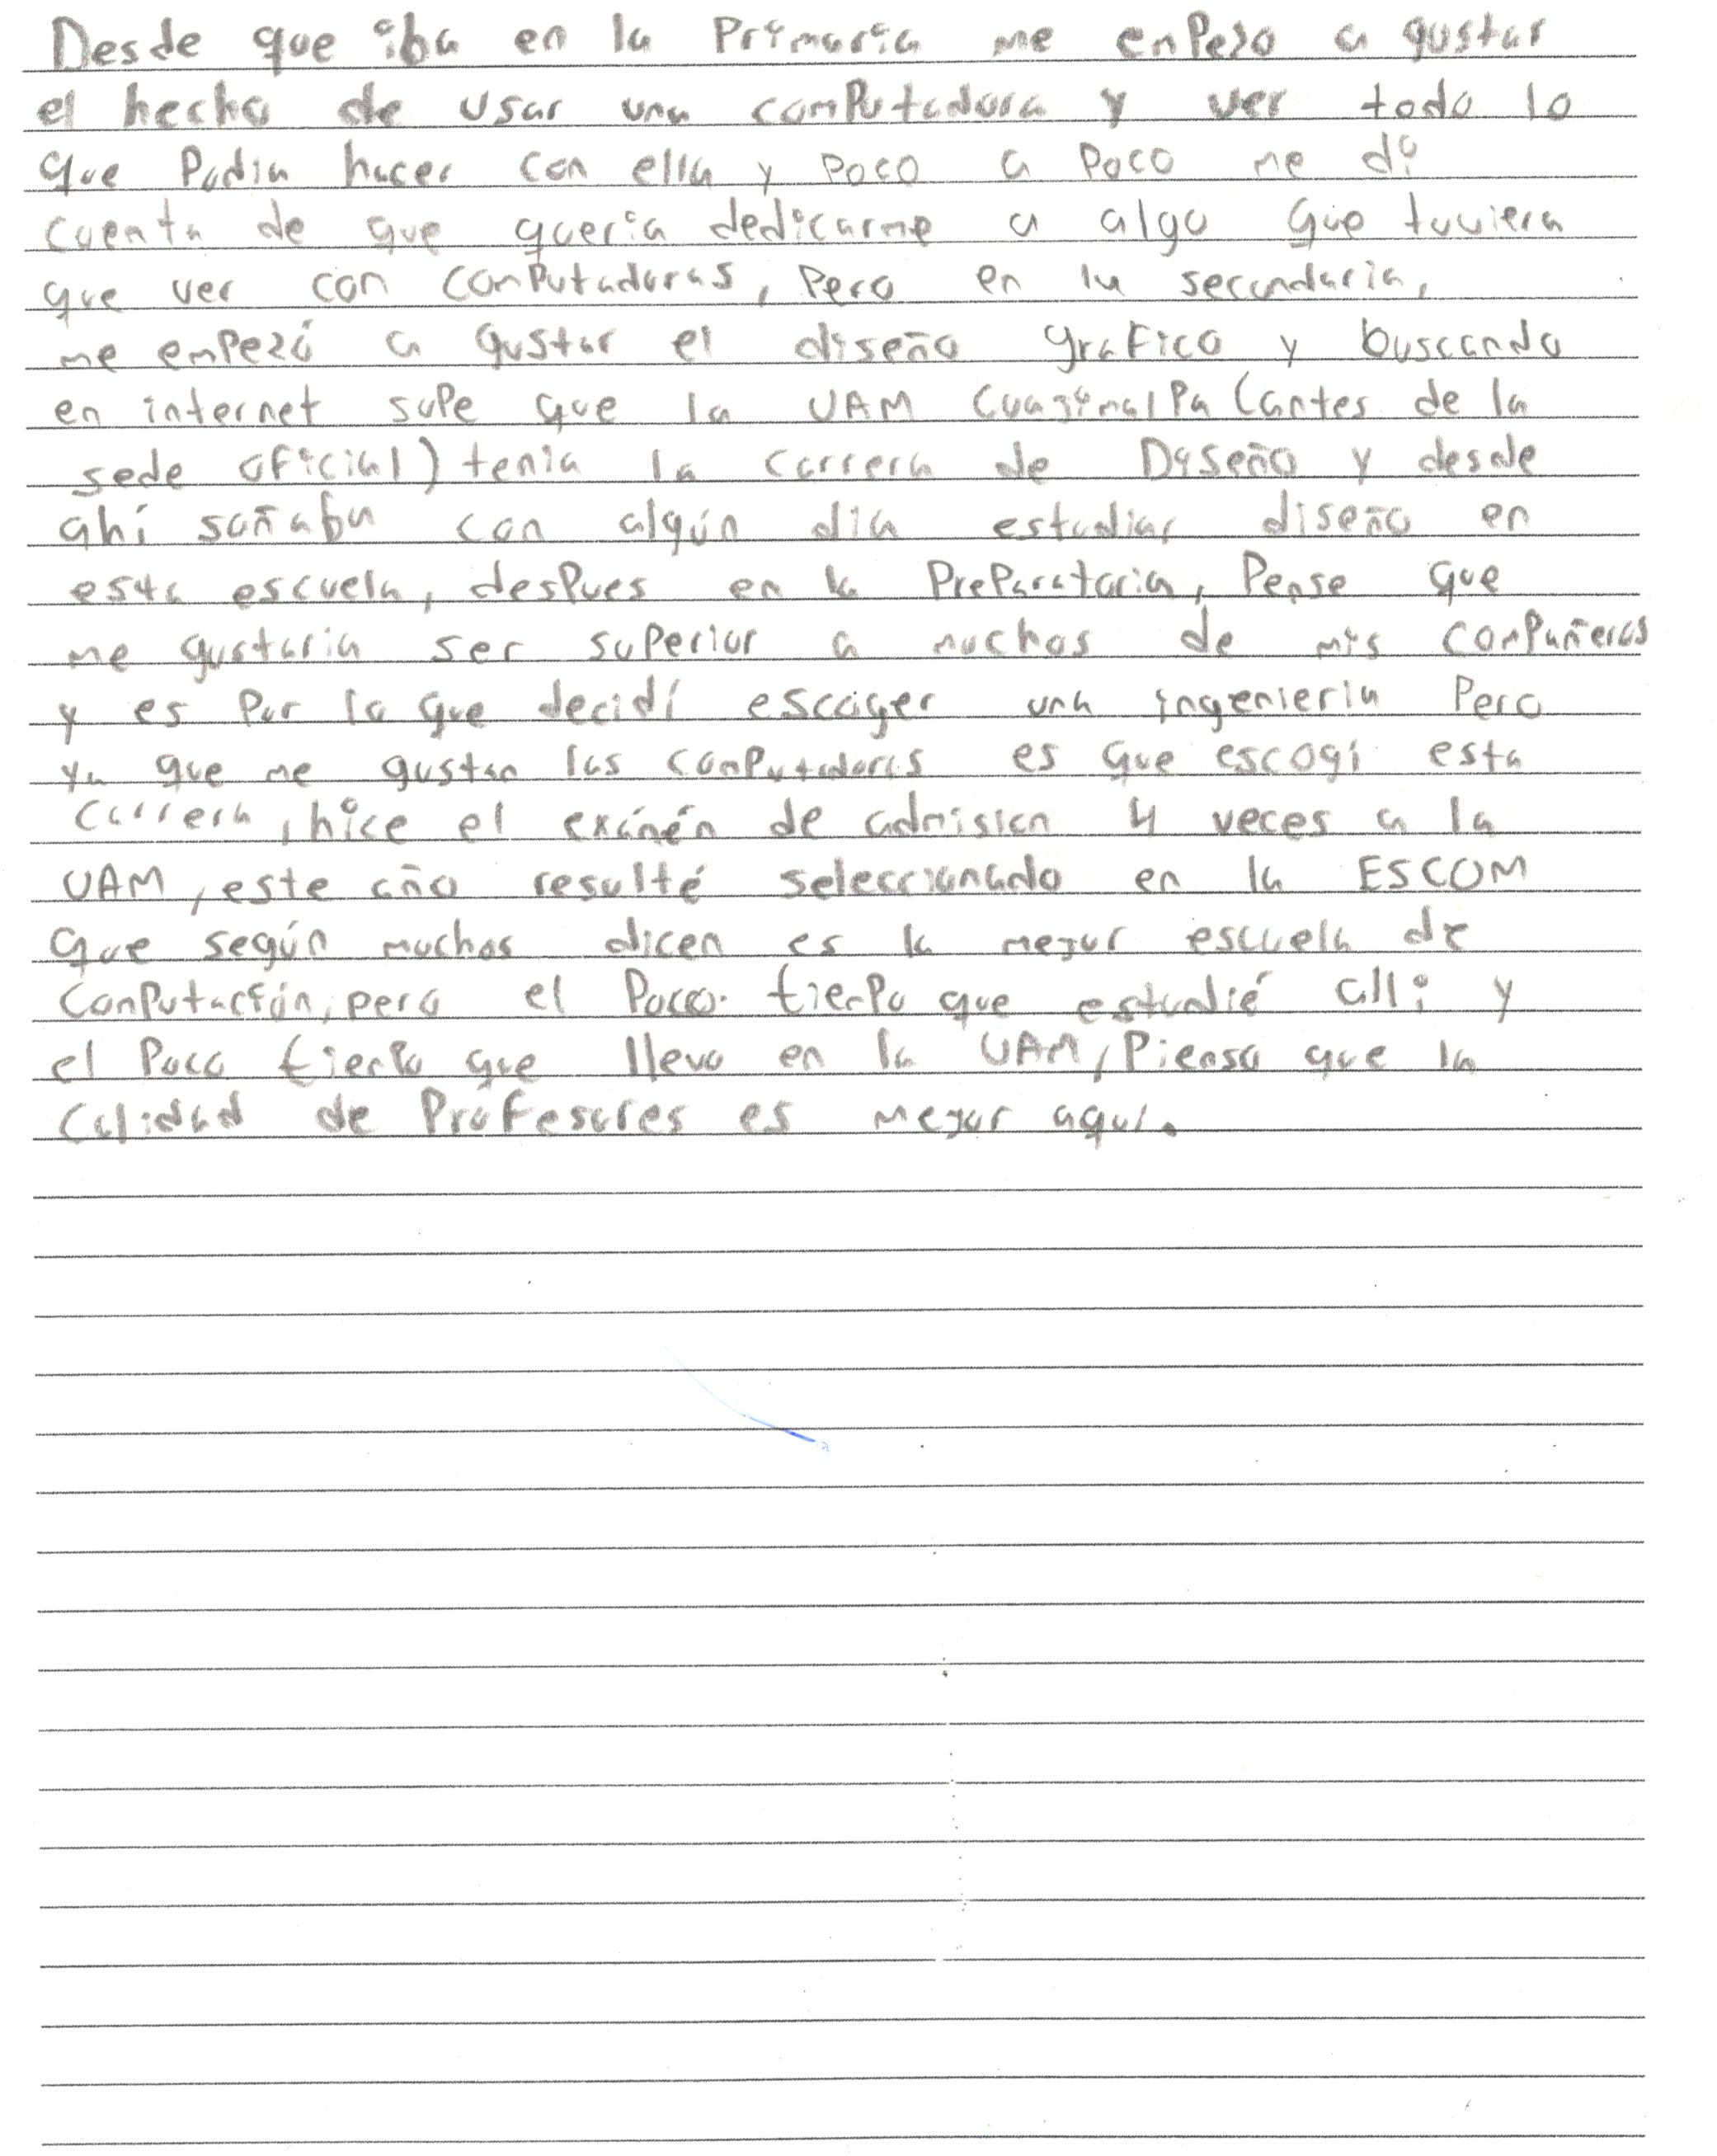 Desde que iba en la Primaria me enpezo a gustar
el hecho de usar una computadora y ver todo lo
que Podia hacer con ella y poco a poco me di
cuenta de que quería dedicarme a algo que tuviera
que ver con computadoras, Pero en la secundaria,
me empezó a gustar el diseño grafico y buscando
en internet supe que la UAM Cuajimalpa (antes de la
sede oficial) tenia la carrera de Diseño y desde
ahí soñaba con algún dia estudiar diseño en
esta escuela, despues en la Preparatoria, Pense que
me gustaria ser superior a muchos de mis compañeros
y es por lo que decidí escoger una ingenieria Pero
ya que me gustan las computadoras es que escogí esta
carrera, hice el exámén de admision 4 veces a la
UAM, este año resulté seleccionado en la ESCOM
que según muchos dicen es la mejor escuela de
Computación, pero el Poco tiempo que estudié alli y
el Poco tiempo que llevo en la UAM, Pienso que la
Calidad de Profesores es mejor aquí.